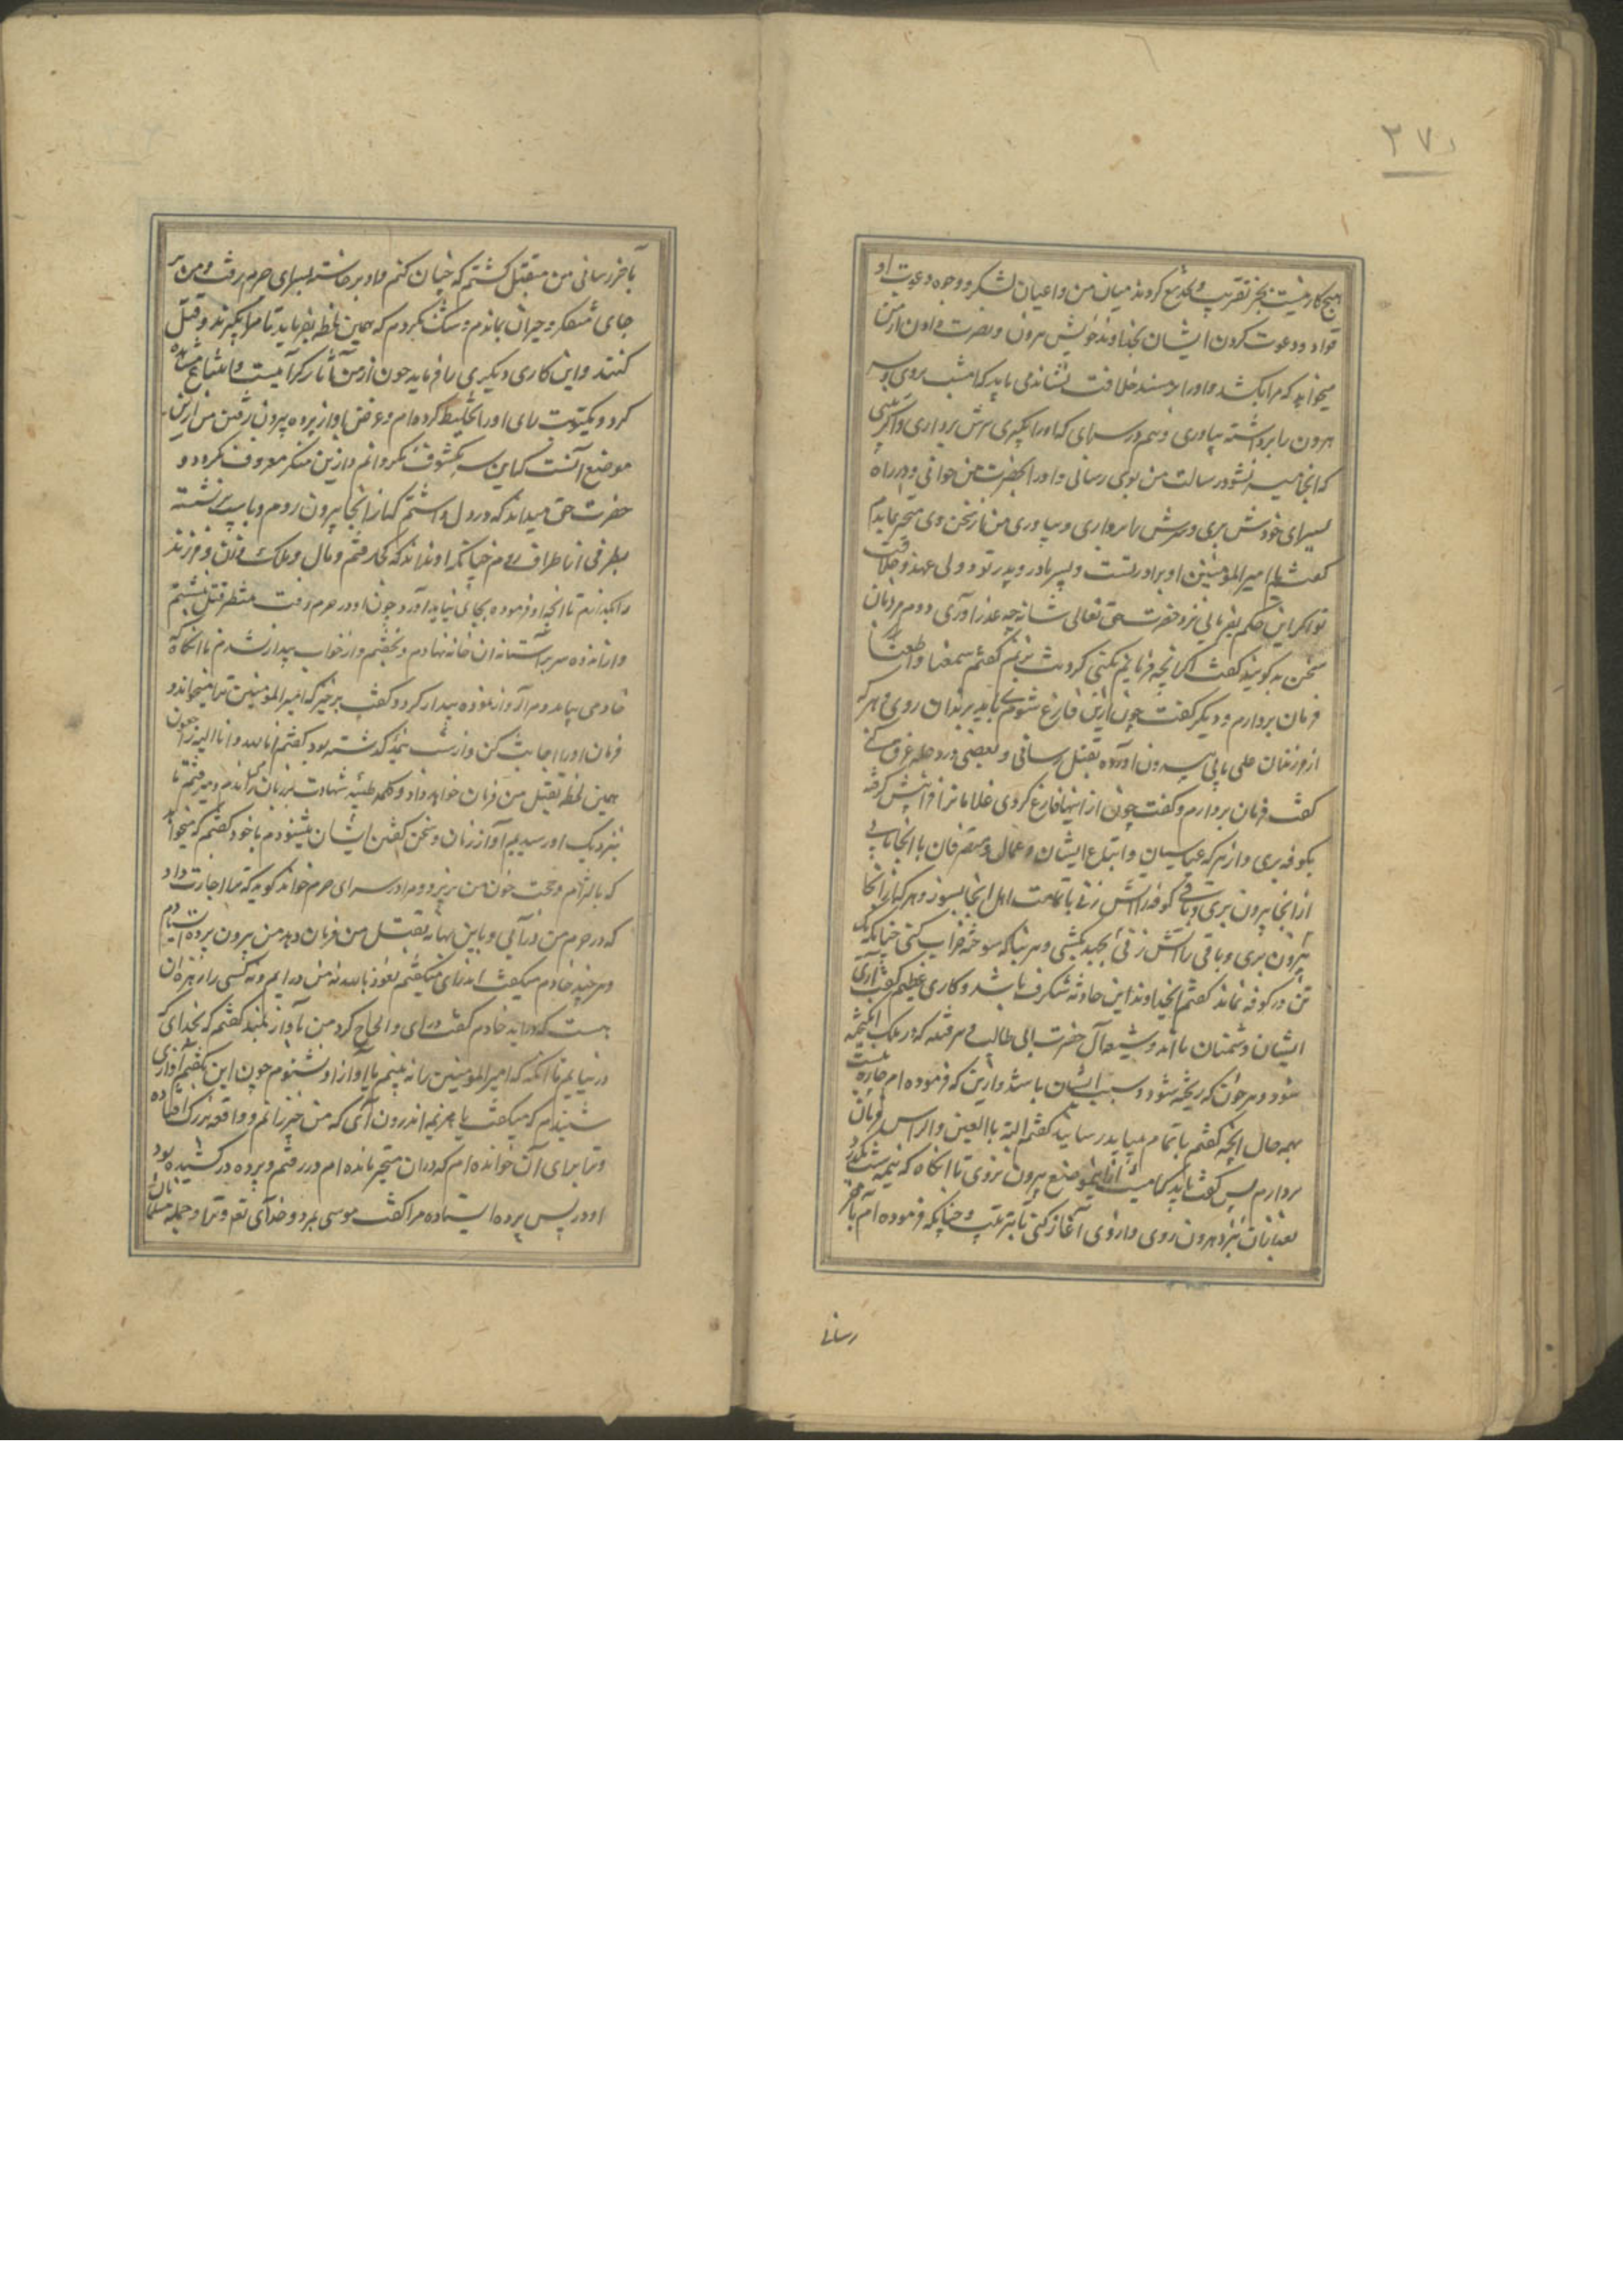 ۳۷
هیچ کار نیست بجز تقریب و تضریع کردند میان من و اعیان لشکر و وجوه دعوت او
قواد و دعوت کردن ایشان بخداوند خویش هرون و بصرت دادن ازمن
میخواهد که مرا بکشد و او را بر مسند خلافت نشاند می باید که امشب بروی و سر
هرون را برداشته بیاوری و هم در سرای که او را بگیری سرش برداری و اگر
که آنجا میسر نشود رسالت من بوی رسانی و او را بحضرت من خوانی و در راه
بسرای خودش بری و سرش را برداری و بیاوری من از سخن وی متحیر بماندم
گفتم یا امیر المؤمنین او برادر تست و پسر مادر و پدر تو و ولی عهد و خلافت
تو اگر این حکم بفرمائی نزد حضرت حق تعالی شانه چه عذر آوری و مردمان
سخن بد گویند گفت اگر آنچه فرمایم نکنی گردنت بزنم گفتم سمعنا و اطعنا
فرمان بردارم و دیگر گفت چون ازین فارغ شوی باید بزندان روی و هر که
از فرزندان علی یابی بیرون آورده بقتل رسانی و بعضی در دجله غرق کنی
گفت فرمان بردارم و گفت چون از اینها فارغ کردی غلامانرا فرا پیش گرفته
بکوفه بری و از هر که عباسیان و اتباع ایشان و عمال و متصرفان باآنجا یابی
از آنجا بیرون بری و باقی کوفه را آتش زنی با تمامت اهل آنجا بسوزد و هر که از آنجا
بیرون بری و باقی را آتش زنی بکشی و هر بنا که سوخته خراب کنی چنانکه یک
تن در کوفه نماند گفتم ایخداوند این حادثه شگرف باشد و کاری عظیم گفت آری
ایشان دشمنان ما اند و شیعه آل حضرت ابی طالب و هر فتنه که در ملک انگیخته
شود و هر خون که ریخته شود و سبب ایشان باشند و ازین که فرموده ام چاره نیست
بهمه حال آنچه گفتم باتمام بباید رسانید گفتم البته باالعین و الراس فرمان
بردارم پس گفت باید که امیت ازاین موضع بیرون نروی تا آنگاه که نیمه شب بگذرد
بعد ازان نزد هرون روی و از وی آغاز کنی بترتیب و چنانکه فرموده ام بآخر
رسانی
بآخر رسانی من متقبل گشتم که چنان کنم و او برخاست بسرای حرم رفت و من بر
جای متفکر و حیران بماندم و شک نکردم که همین لحظه بفرماید تا مرا بگیرند و قتل
کنند و این کاری دیگری را فرماید چون از من آثار کراهیت و امتناع مشاهده
کرد و یکنوبت رای او را تخلیط کرده ام و غرض او از پرده بیرون رفتن من ازین
موضع آنست که این سر مکشوف نگردانم و ازین منکر معروف نگردد و
حضرت حق میداند که در دل داشتم که از آنجا بیرون روم و با سپ برنشسته
بطرفی از اطراف روم چنانکه او نداند که کجا رفتم و مال و ملک و زن و فرزند
را بگذارم تا آنچه او فرموده بجای نیاید آورد و چون او در حرم رفت منتظر قتل بنشستم
و از اندوه سر بر آستانه آن خانه نهادم و بخفتم و از خواب بیدار نشدم تا آنگاه
خادمی بیامد و مرا آواز نموده بیدار کرد و گفت برخیز که امیر المؤمنین ترا میخواند و
فرمان او را اجابت کن و از شب نیمی گذشته بود گفتم انا لله و انا الیه راجعون
همین لحظه بقتل من فرمان خواهد داد و کلمه طیبه شهادت بر زبان براندم و میرفتم تا
بنزدیک او رسیدم آواز زنان و سخن گفتن ایشان بشنودم با خود گفتم که میخواهد
که با الزام و حجت خون من بریزد و مرا در سرای حرم خواند گوید که ترا اجازت داد
که در حرم من در آئی و باین بهانه بقتل من فرمان دهد من بیرون پرده استادم
و هر چند خادم میگفت اندر آی میگفتم نعوذ بالله نه من در ایم و نه کسی را زهره آن
هست که در اید خادم گفت در آی و الحاح کرد من باواز بلند گفتم که بخدای که
در نیایم تا آنکه که امیر المؤمنین را نه بینم یا آواز او شنوم چون این گفتم آوازی
شنیدم که میگفت یا هرثمه اندرون آی که من خیزرانم و واقعه بزرگ افتاده
و ترا برای آن خوانده ام که دران متحیر مانده ام در رفتم و پرده در کشیده بود
او در پس پرده ایستاده مرا گفت موسی بمرد و خدای تعم و ترا و جمله مسلمانان